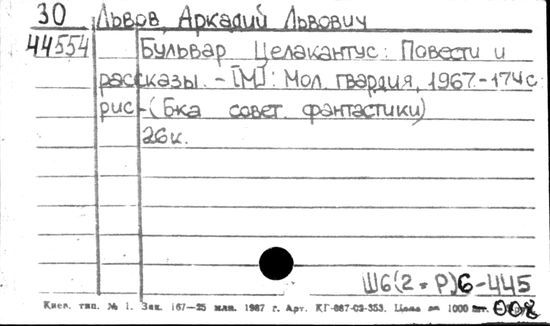 30 Львов, Аркадий Львович
44554 Бульвар Целакантус: Повести и
рассказы. - [М]: Мол. гвардия, 1967. - 174 с
рис - (Б-ка совет. фантастики)
26 к.
Ш6(2=Р)6-445
Киев. тип. № 1. Зак. 167—25 млн. 1987 г. Арт. КГ-087-03-353. Цена за 1000 шт. 008